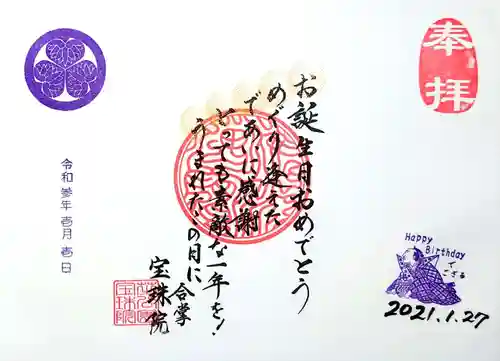 奉拝
お誕生月おめでとう
めぐり逢えた
であいに感謝
とっても素敵な一年を!
うまれたこの日に
合掌
宝珠院
令和参年壱月壱日
Happy
Birthday
で
ござる
2021.1.27